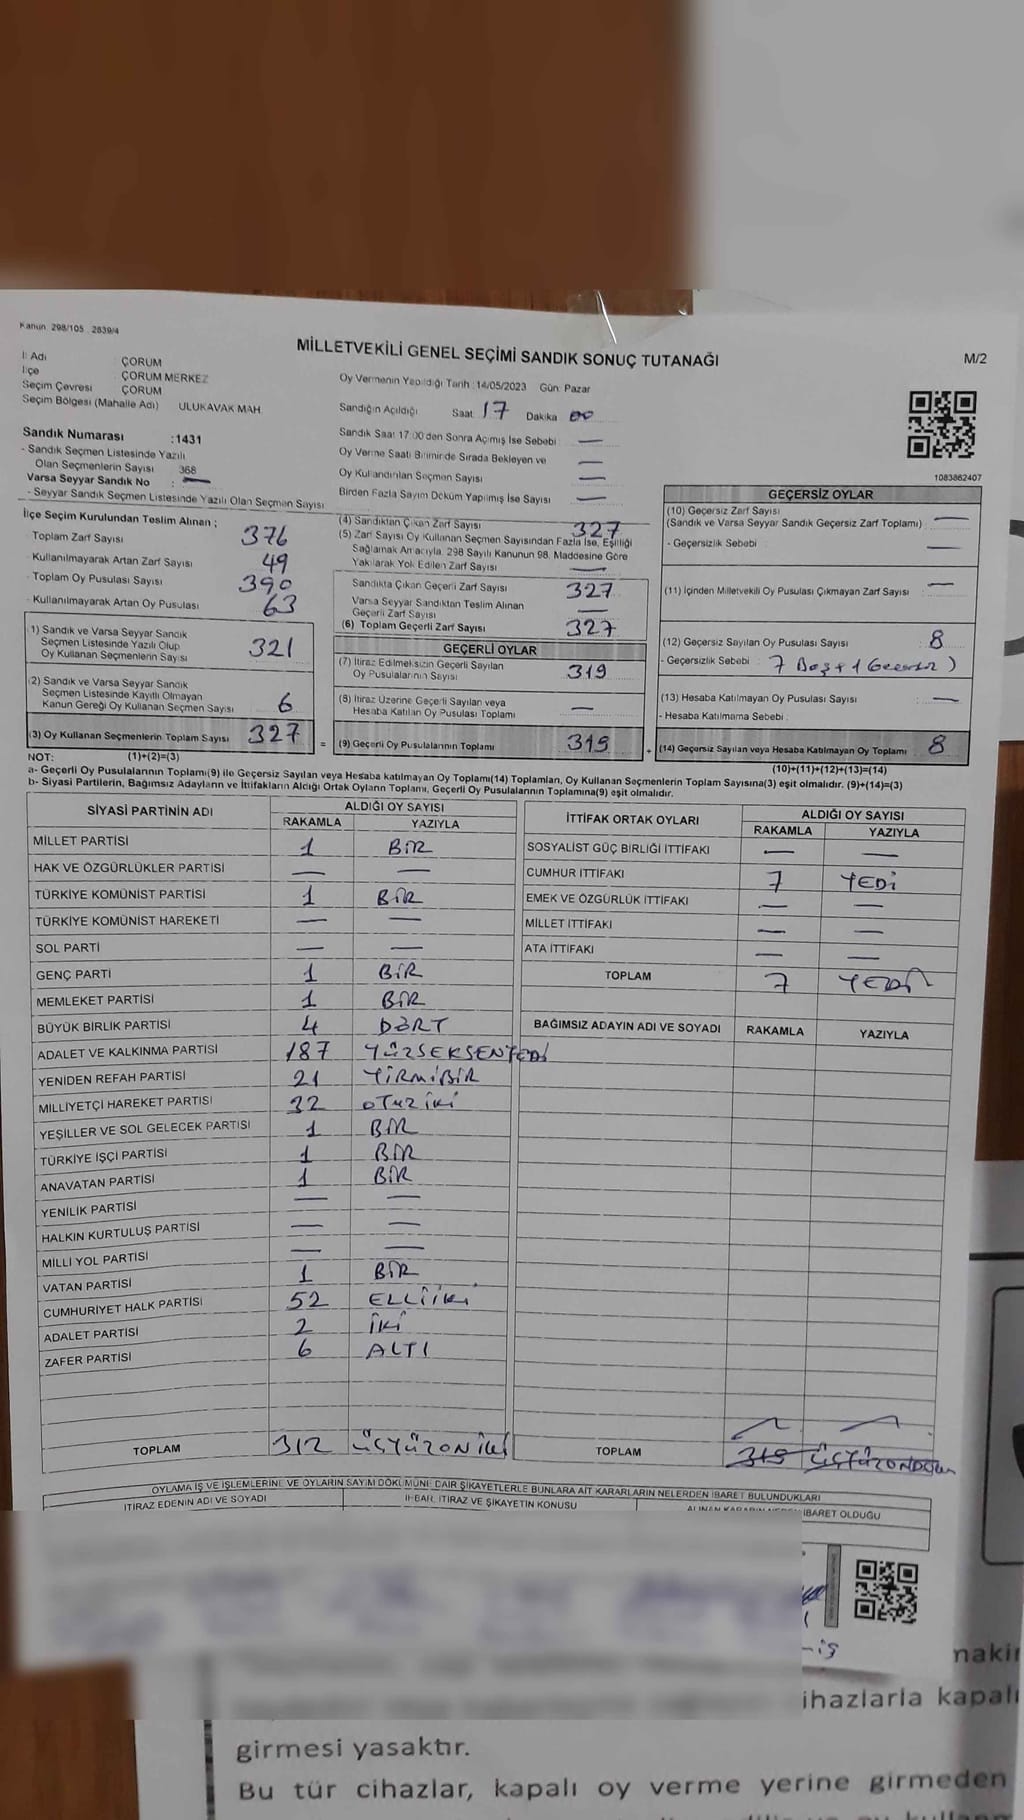 Kanun 298/105 2839/4
MİLLETVEKİLİ GENEL SEÇİMİ SANDIK SONUÇ TUTANAĞI
M/2
İl Adı ÇORUM
İlçe ÇORUM MERKEZ
Seçim Çevresi ÇORUM
Seçim Bölgesi (Mahalle Adı) ULUKAVAK MAH.
Oy Vermenin Yapıldığı Tarih : 14/05/2023 Gün: Pazar
Sandığın Açıldığı Saat 17 Dakika 00
Sandık Saat 17:00 den Sonra Açılmış İse Sebebi : —
Oy Verme Saati Bitiminde Sırada Bekleyen ve —
Oy Kullandırılan Seçmen Sayısı —
Birden Fazla Sayım Döküm Yapılmış İse Sayısı —
Sandık Numarası :1431
- Sandık Seçmen Listesinde Yazılı
Olan Seçmenlerin Sayısı 368
Varsa Seyyar Sandık No : —
- Seyyar Sandık Seçmen Listesinde Yazılı Olan Seçmen Sayısı
1083862407
İlçe Seçim Kurulundan Teslim Alınan ;
Toplam Zarf Sayısı 376
Kullanılmayarak Artan Zarf Sayısı 49
Toplam Oy Pusulası Sayısı 390
Kullanılmayarak Artan Oy Pusulası 63
1) Sandık ve Varsa Seyyar Sandık
Seçmen Listesinde Yazılı Olup
Oy Kullanan Seçmenlerin Sayısı 321
(2) Sandık ve Varsa Seyyar Sandık
Seçmen Listesinde Kayıtlı Olmayan
Kanun Gereği Oy Kullanan Seçmen Sayısı 6
(3) Oy Kullanan Seçmenlerin Toplam Sayısı 327
(4) Sandıktan Çıkan Zarf Sayısı 327
(5) Zarf Sayısı Oy Kullanan Seçmen Sayısından Fazla İse, Eşitliği
Sağlamak Amacıyla, 298 Sayılı Kanunun 98. Maddesine Göre
Yakılarak Yok Edilen Zarf Sayısı —
Sandıkta Çıkan Geçerli Zarf Sayısı 327
Varsa Seyyar Sandıktan Teslim Alınan
Geçerli Zarf Sayısı —
(6) Toplam Geçerli Zarf Sayısı 327
GEÇERLİ OYLAR
(7) İtiraz Edilmeksizin Geçerli Sayılan
Oy Pusulalarının Sayısı 319
(8) İtiraz Üzerine Geçerli Sayılan veya
Hesaba Katılan Oy Pusulası Toplamı —
= (9) Geçerli Oy Pusulalarının Toplamı 319
GEÇERSİZ OYLAR
(10) Geçersiz Zarf Sayısı
(Sandık ve Varsa Seyyar Sandık Geçersiz Zarf Toplamı) : —
- Geçersizlik Sebebi : —
(11) İçinden Milletvekili Oy Pusulası Çıkmayan Zarf Sayısı : —
(12) Geçersiz Sayılan Oy Pusulası Sayısı 8
- Geçersizlik Sebebi : 7 Boş + 1 Geçersiz )
(13) Hesaba Katılmayan Oy Pusulası Sayısı : —
- Hesaba Katılmama Sebebi :
+ (14) Geçersiz Sayılan veya Hesaba Katılmayan Oy Toplamı 8
NOT: (1)+(2)=(3)
(10)+(11)+(12)+(13)=(14)
a- Geçerli Oy Pusulalarının Toplamı(9) ile Geçersiz Sayılan veya Hesaba katılmayan Oy Toplamı(14) Toplamları, Oy Kullanan Seçmenlerin Toplam Sayısına(3) eşit olmalıdır. (9)+(14)=(3)
b- Siyasi Partilerin, Bağımsız Adayların ve İttifakların Aldığı Ortak Oyların Toplamı, Geçerli Oy Pusulalarının Toplamına(9) eşit olmalıdır.
SİYASİ PARTİNİN ADI ALDIĞI OY SAYISI
RAKAMLA YAZIYLA
MİLLET PARTİSİ 1 BİR
HAK VE ÖZGÜRLÜKLER PARTİSİ — —
TÜRKİYE KOMÜNİST PARTİSİ 1 BİR
TÜRKİYE KOMÜNİST HAREKETİ — —
SOL PARTİ — —
GENÇ PARTİ 1 BİR
MEMLEKET PARTİSİ 1 BİR
BÜYÜK BİRLİK PARTİSİ 4 DÖRT
ADALET VE KALKINMA PARTİSİ 187 YÜZSEKSENYEDİ
YENİDEN REFAH PARTİSİ 21 YİRMİBİR
MİLLİYETÇİ HAREKET PARTİSİ 32 OTUZ İKİ
YEŞİLLER VE SOL GELECEK PARTİSİ 1 BİR
TÜRKİYE İŞÇİ PARTİSİ 1 BİR
ANAVATAN PARTİSİ 1 BİR
YENİLİK PARTİSİ — —
HALKIN KURTULUŞ PARTİSİ — —
MİLLİ YOL PARTİSİ — —
VATAN PARTİSİ 1 BİR
CUMHURİYET HALK PARTİSİ 52 ELLİİKİ
ADALET PARTİSİ 2 İKİ
ZAFER PARTİSİ 6 ALTI
TOPLAM 312 ÜÇYÜZON İKİ
İTTİFAK ORTAK OYLARI ALDIĞI OY SAYISI
RAKAMLA YAZIYLA
SOSYALİST GÜÇ BİRLİĞİ İTTİFAKI — —
CUMHUR İTTİFAKI 7 YEDİ
EMEK VE ÖZGÜRLÜK İTTİFAKI — —
MİLLET İTTİFAKI — —
ATA İTTİFAKI — —
TOPLAM 7 YEDİ
BAĞIMSIZ ADAYIN ADI VE SOYADI RAKAMLA YAZIYLA
TOPLAM 319 ÜÇYÜZONDOKUZ
OYLAMA İŞ VE İŞLEMLERİNE VE OYLARIN SAYIM DÖKÜMÜNE DAİR ŞİKAYETLERLE BUNLARA AİT KARARLARIN NELERDEN İBARET BULUNDUKLARI
İTİRAZ EDENİN ADI VE SOYADI İHBAR, İTİRAZ VE ŞİKAYETİN KONUSU ALINAN KARARIN NEDEN İBARET OLDUĞU
ihazlarla kapalı
girmesi yasaktır.
Bu tür cihazlar, kapalı oy verme yerine girmeden